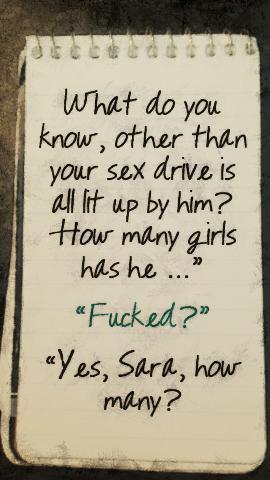 What do you
know, other than
your sex drive is
all lit up by him?
How many girls
has he ..."
"Fucked?"
"Yes, Sara, how
many?